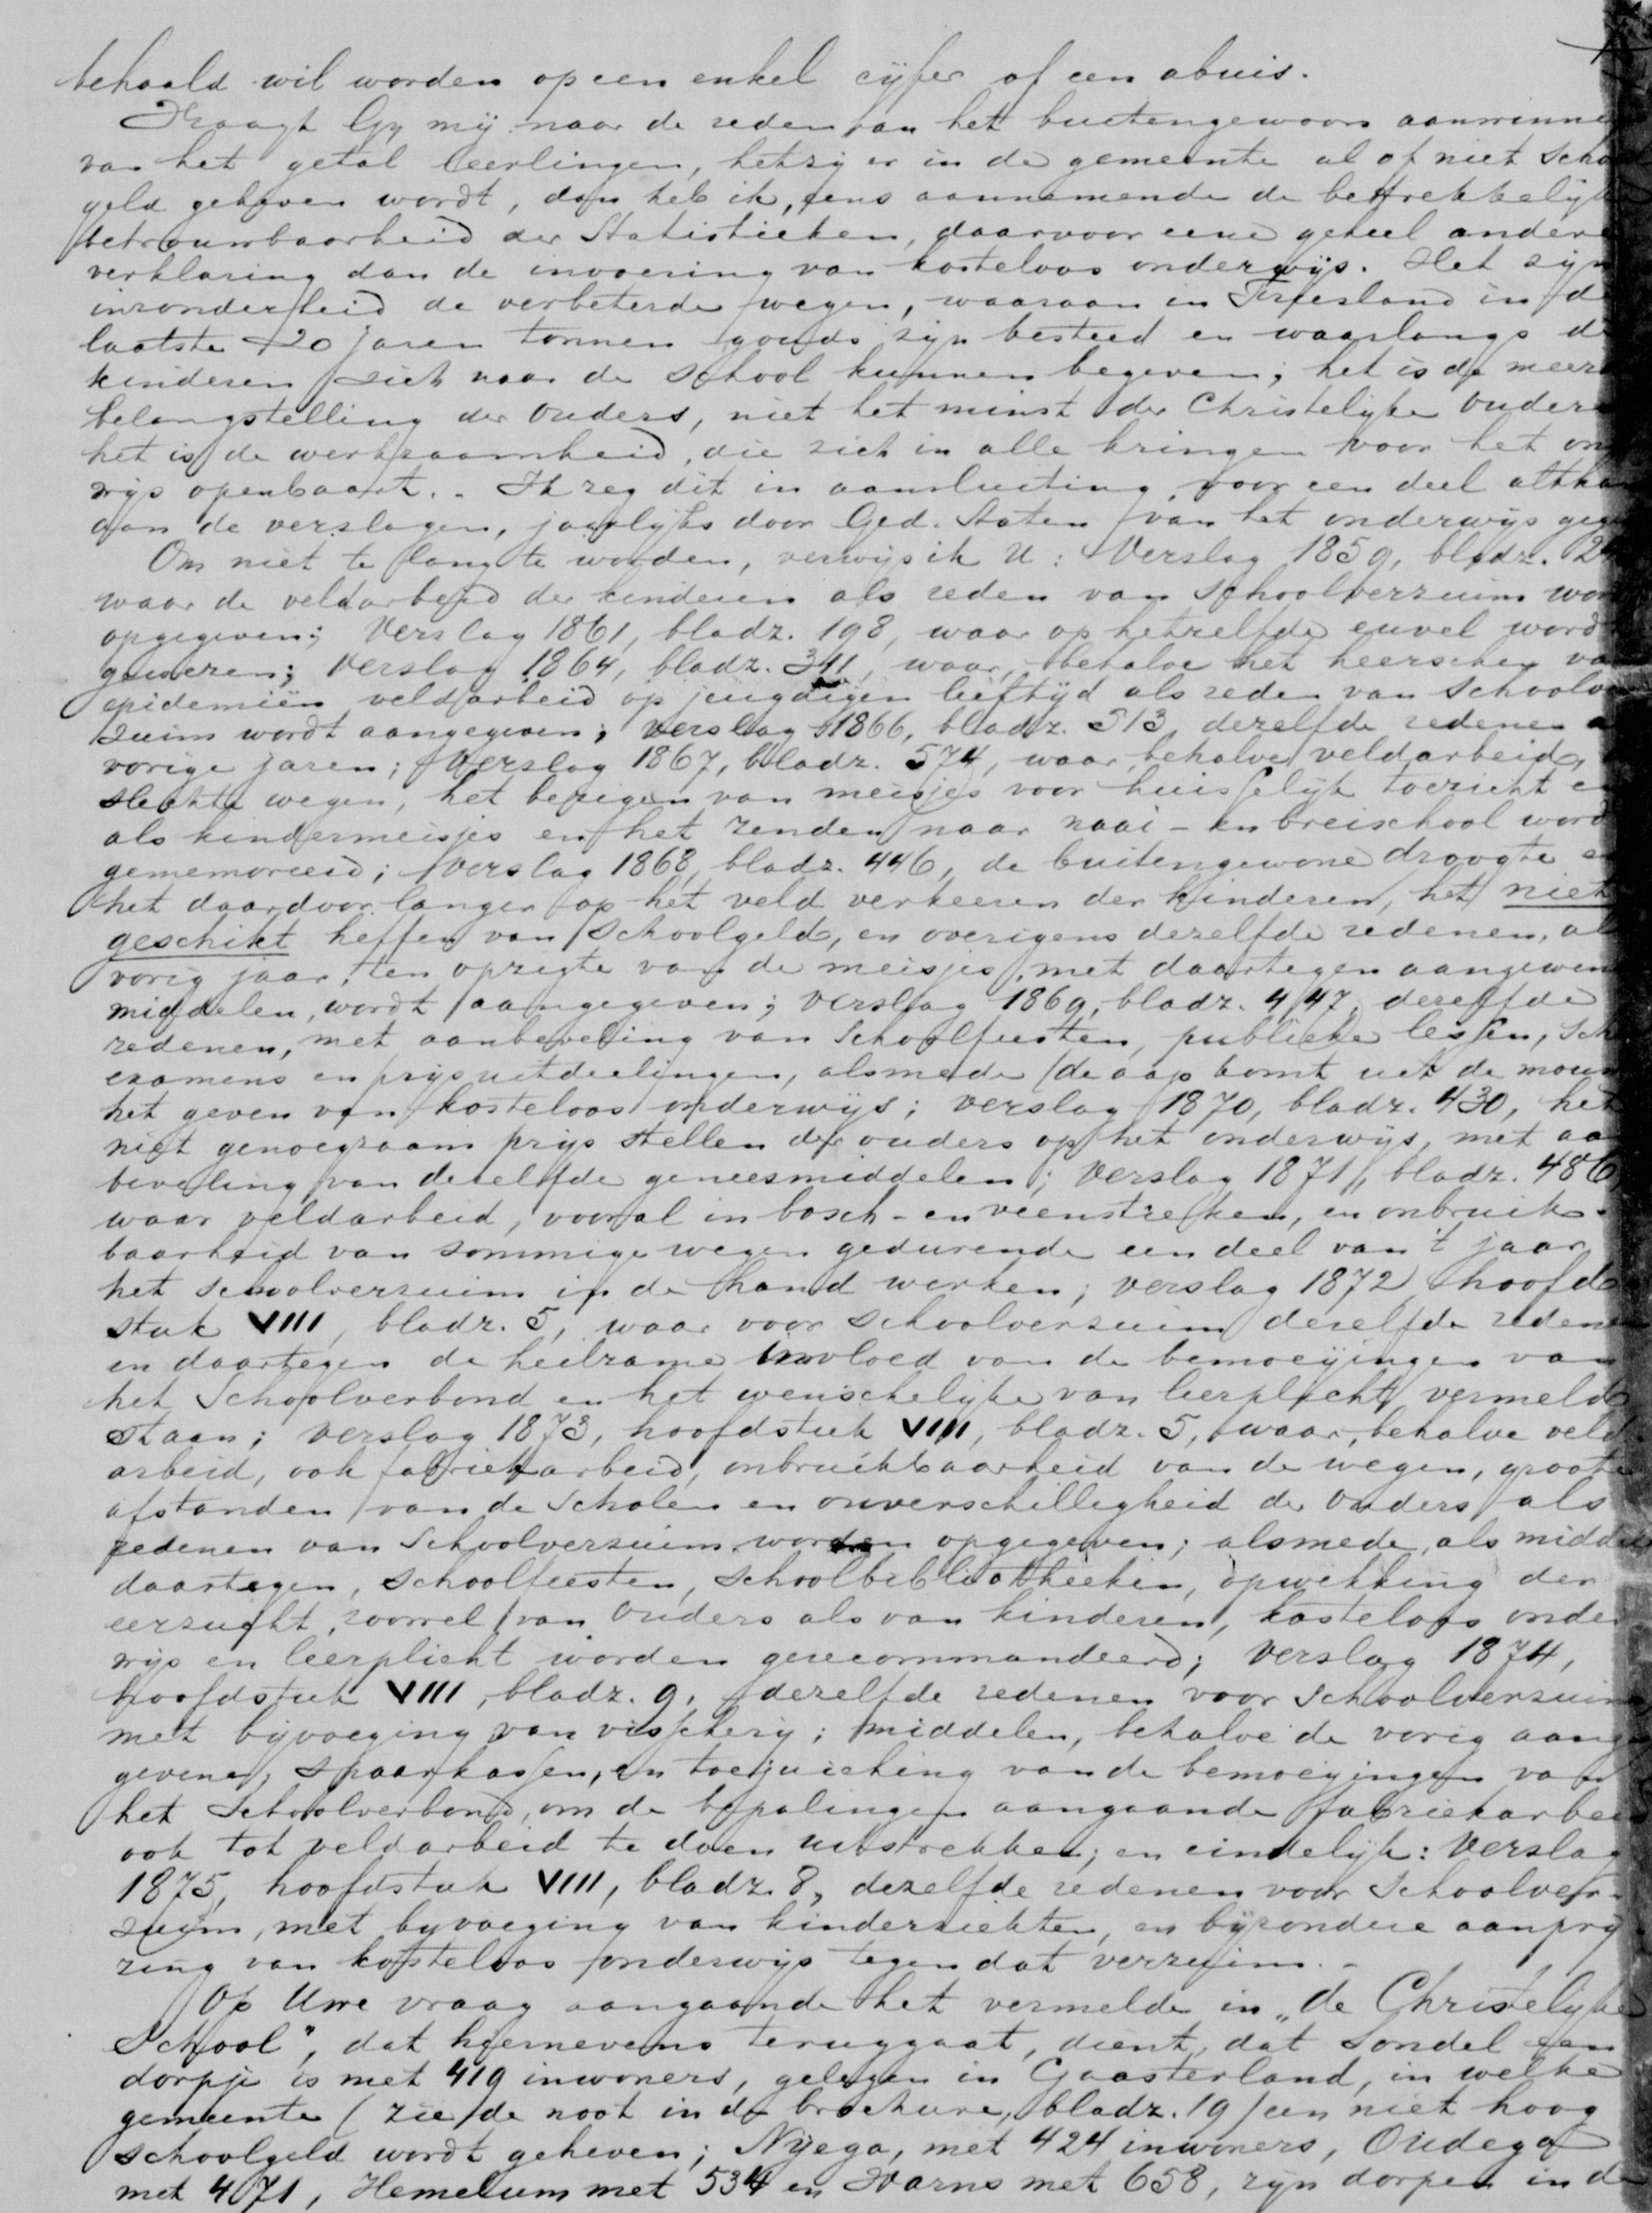 behaald wil worden op een enkel cijfer of een abuis.
Vraagt Gij mij naar de reden van het buitengewoon aanwinnen
van het getal leerlingen, hetzij er in de gemeente al of niet school
geld geheven wordt, dan heb ik, eens aannemende de betrekkelijke
betrouwbaarheid der Statistieken, daarvoor eene geheel andere
verklaring dan de invoering van kosteloos onderwijs. Het zijn
inzonderheid de verbeterde wegen, waaraan in Friesland in de
laatste 20 jaren tonnen gouds zijn besteed en waarlangs de
kinderen zich naar de school kunnen begeven; het is de meer
belangstelling der Ouders, niet het minst der Christelijke Ouders
het is de werkzaamheid, die zich in alle kringen voor het on
wijs openbaart. - Ik zeg dit in aansluiting, voor een deel altha
aan de verslagen, jaarlijks door Ged. Staten van het onderwijs gege
Om niet te lang te worden, verwijs ik U: Verslag 1859, bladz.
waar de veldarbeid der kinderen als reden van Schoolverzuim wor
opgegeven; Verslag 1861, bladz. 198, waar op hetzelfde euvel word
gewezen; Verslag 1864, bladz. 311, waar, behalve het heerschen va
epidemiën veldarbeid op jeugdigen leeftijd als reden van Schoolve
zuim wordt aangegeven; verslag 1866, bladz. 513, dezelfde redenen
vorige jaren; Verslag 1867, bladz. 574, waar, behalve veldarbeid,
slechte wegen, het bezigen van meisjes voor huisselijk toezicht en
als kindermeisjes en het zenden naar naai- en breischool word
gememoreerd; Verslag 1868, bladz. 446, de buitengewone droogte en
het daardoor langer op het veld verkeeren der kinderen, het niet
geschikt heffen van Schoolgeld, en overigens dezelfde redenen, al
vorig jaar, ten opzigte van de meisjes, met daartegen aangewen
middelen, wordt aangegeven; Verslag 1869, bladz. 447, dezelfde
redenen, met aanbeveling van Schoolfeesten, publieke lessen, Sch
examens en prijsuitdeelingen, alsmede (de aap komt uit de mouw
het geven van kosteloos onderwijs; verslag 1870, bladz. 430, het
niet genoegzaam prijs stellen der ouders op het onderwijs, met aa
beveling van dezelfde geneesmiddelen; Verslag 1871, bladz. 486,
waar veldarbeid, vooral in bosch- en veenstreken, en onbruik-
baarheid van sommige wegen gedurende een deel van 't jaar
het schoolverzuim in de hand werken; verslag 1872, hoofd
stuk VIII, bladz. 5, waar voor Schoolverzuim dezelfde reden
en daartegen de heilzame invloed van de bemoeijingen van
het Schoolverbond en het wenschelijke van leerplicht vermeld
staan; Verslag 1873, hoofdstuk VIII, bladz. 5, waar, behalve veld
arbeid, ook fabriekarbeid, onbruikbaarheid van de wegen, groote
afstanden van de Scholen en onverschilligheid der Ouders als
redenen van Schoolverzuim worden opgegeven; alsmede, als midde
daartegen, Schoolfeesten, Schoolbibliotheeken, opwekking der
eerzucht, zoowel van Ouders als van kinderen, kosteloos onder
wijs en leerplicht worden gerecommandeerd; Verslag 1874,
hoofdstuk VIII, bladz. 9, dezelfde redenen voor Schoolverzuim
met bijvoeging van visscherij; middelen, behalve de vorig aang
gevene, Spaarkassen, en toejuiching van de bemoeijingen van
het Schoolverbond, om de bepalingen aangaande fabriekarbei
ook tot veldarbeid te doen uitstrekken; en eindelijk: Verslag
1875, hoofdstuk VIII, bladz. 8, dezelfde redenen voor Schoolver-
zuim, met bijvoeging van kinderziekten, en bijzondere aanprij
zing van kosteloos onderwijs tegen dat verzuim. -
Op Uwe vraag aangaande het vermelde in „de Christelijke
School", dat hiernevens teruggaat, dient, dat Sondel een
dorpje is met 419 inwoners, gelegen in Gaasterland, in welke
gemeente (zie de noot in de brochure, bladz. 19) een niet hoog
schoolgeld wordt geheven; Nijega, met 424 inwoners, Oudega
met 471, Hemelum met 534 en Warns met 658, zijn dorpen in d